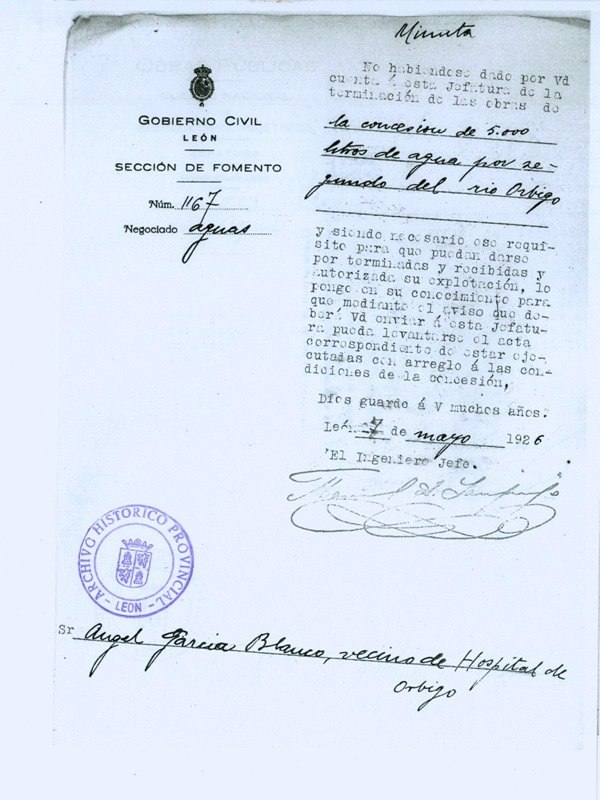 Minuta
No habiendose dado por Vd
cuenta á esta Jefatura de la
terminación de las obras de
la concesion de 5.000
litros de agua por se-
gundo del rio Orbigo
y siendo necesario ese requi-
sito para que puedan darse
por terminadas y recibidas y
autorizada su explotación, lo
pongo en su conocimiento para
que mediante el aviso que de-
berá Vd enviar á esta Jefatu-
ra pueda levantarse el acta
correspondiente de estar eje-
cutadas con arreglo á las con-
diciones de la concesión,
Dios guarde á V muchos años.
León 7 de mayo 1926
El Ingeniero Jefe.
GOBIERNO CIVIL
LEÓN
SECCIÓN DE FOMENTO
Núm. 1167
Negociado aguas
ARCHIVO HISTORICO PROVINCIAL
- LEON -
Sr Angel Garcia Blanco, vecino de Hospital de
Orbigo